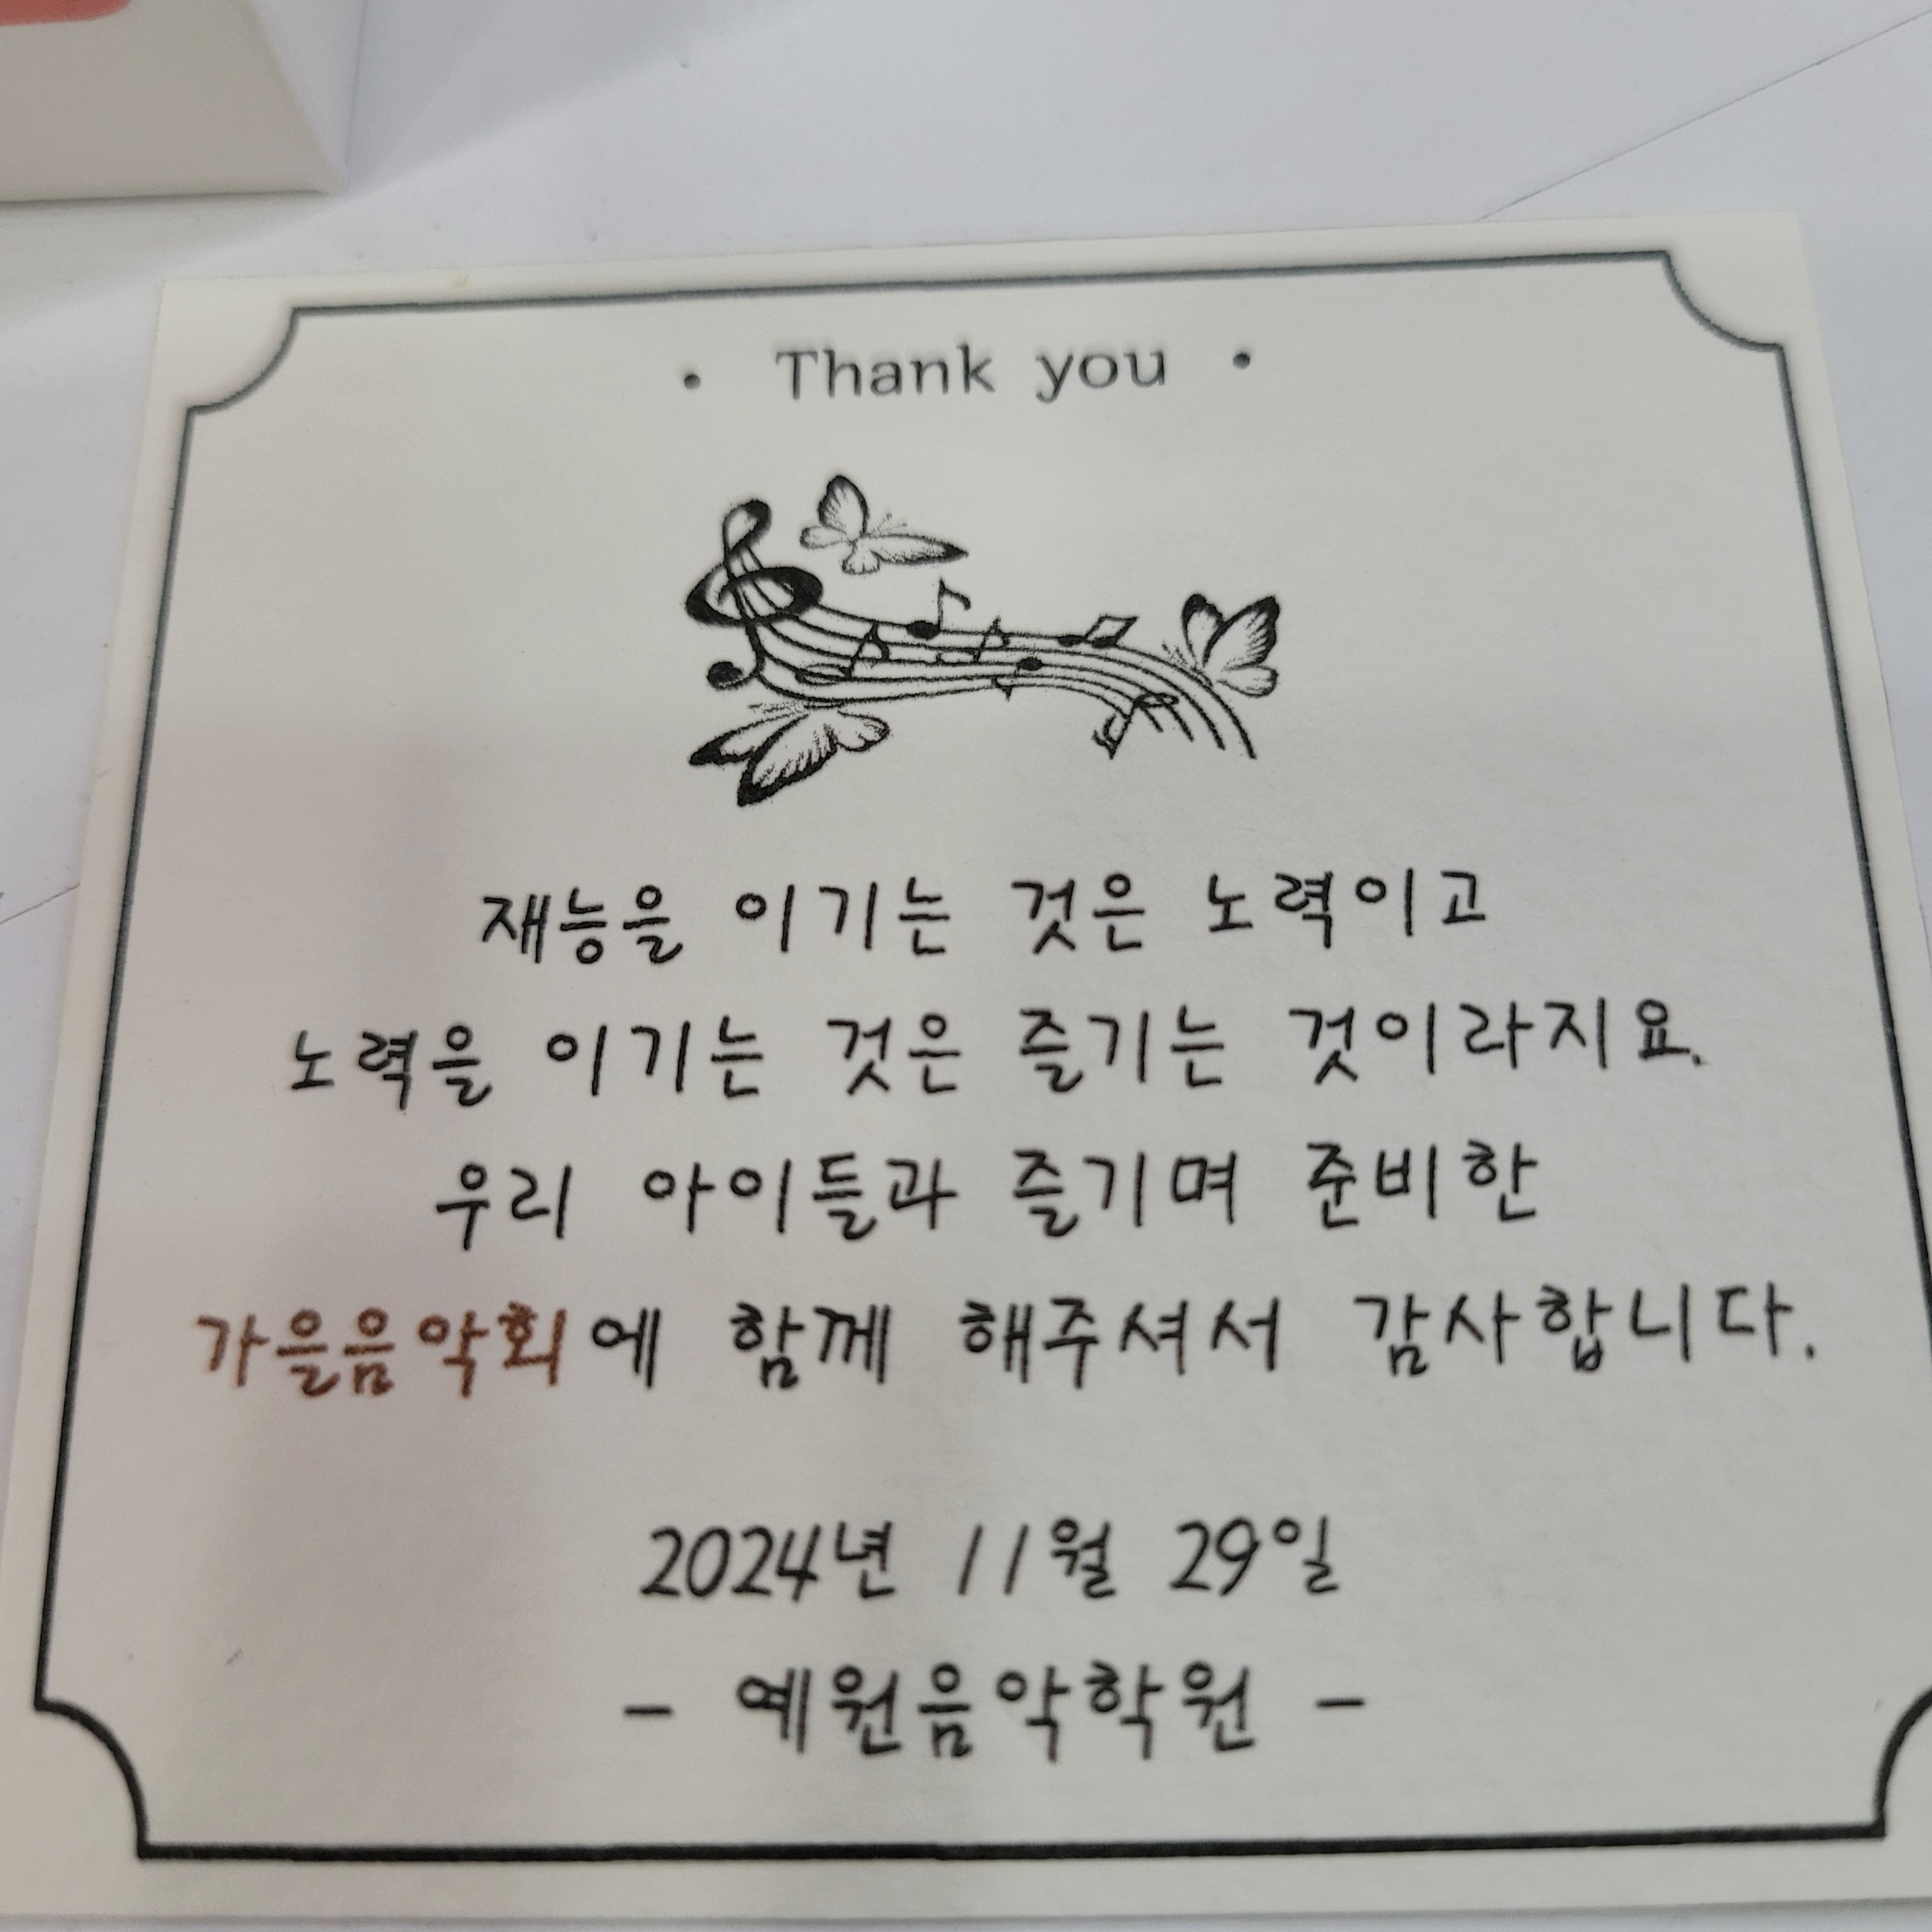 • Thank you •
재능을 이기는 것은 노력이고
노력을 이기는 것은 즐기는 것이라지요.
우리 아이들과 즐기며 준비한
가을음악회에 함께 해주셔서 감사합니다.
2024년 11월 29일
- 예원음악학원 -